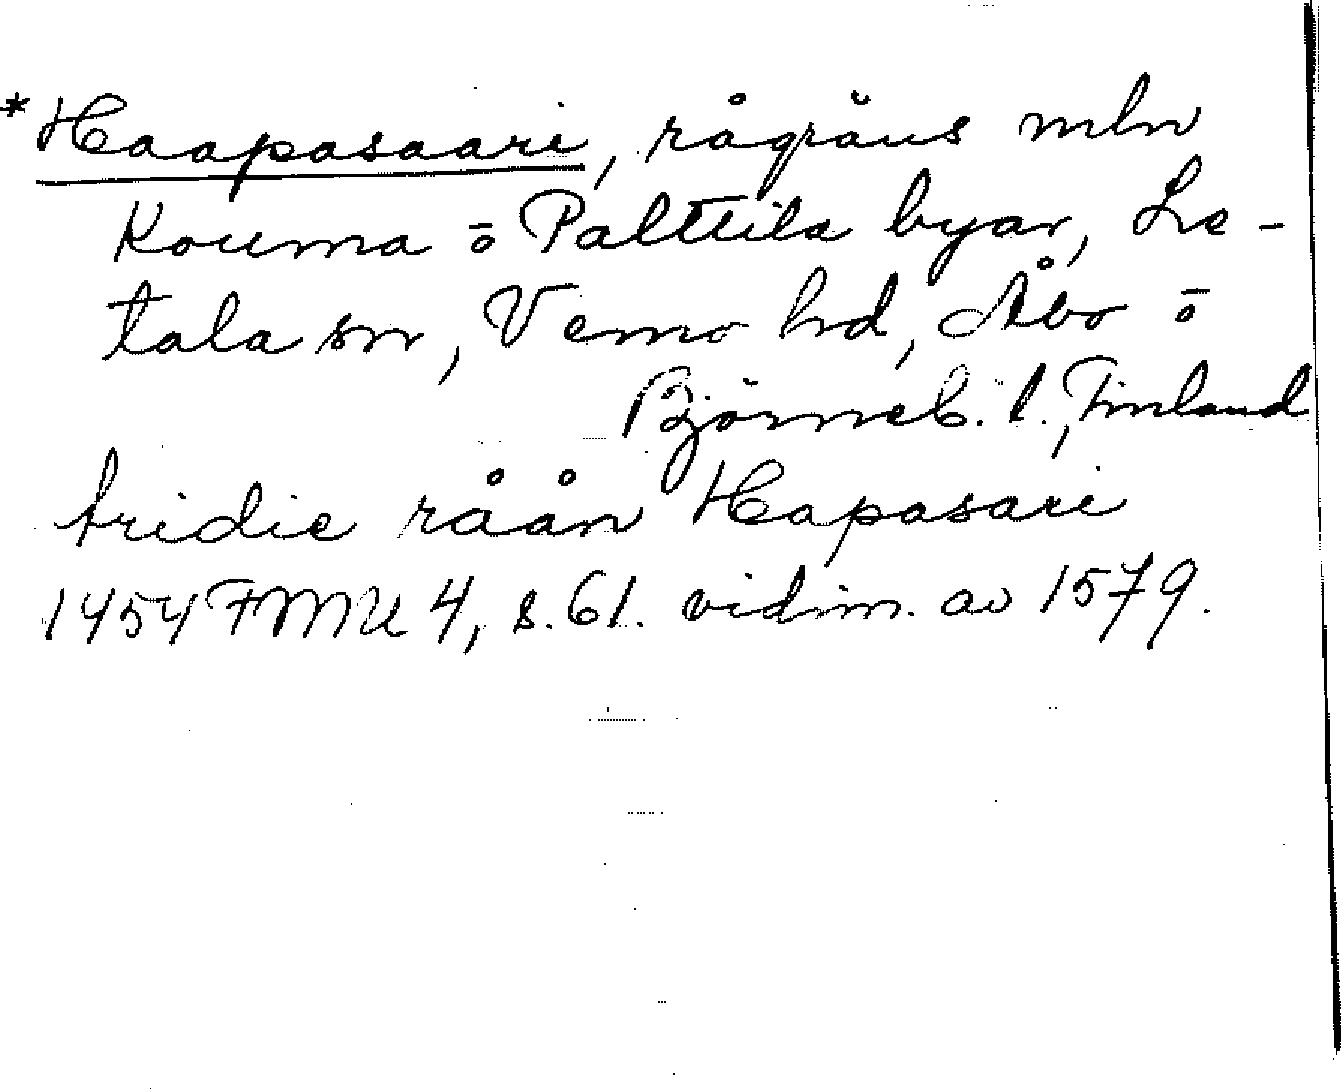 *Haapasaari, rågräns mln
Kouma ō Palttila byar, Le-
tala sn, Vemo hd, Åbo ō
Björneb. l., Finland
tridie råån Hapasari
1454 FMU 4, s. 61. vidim. av 1579.